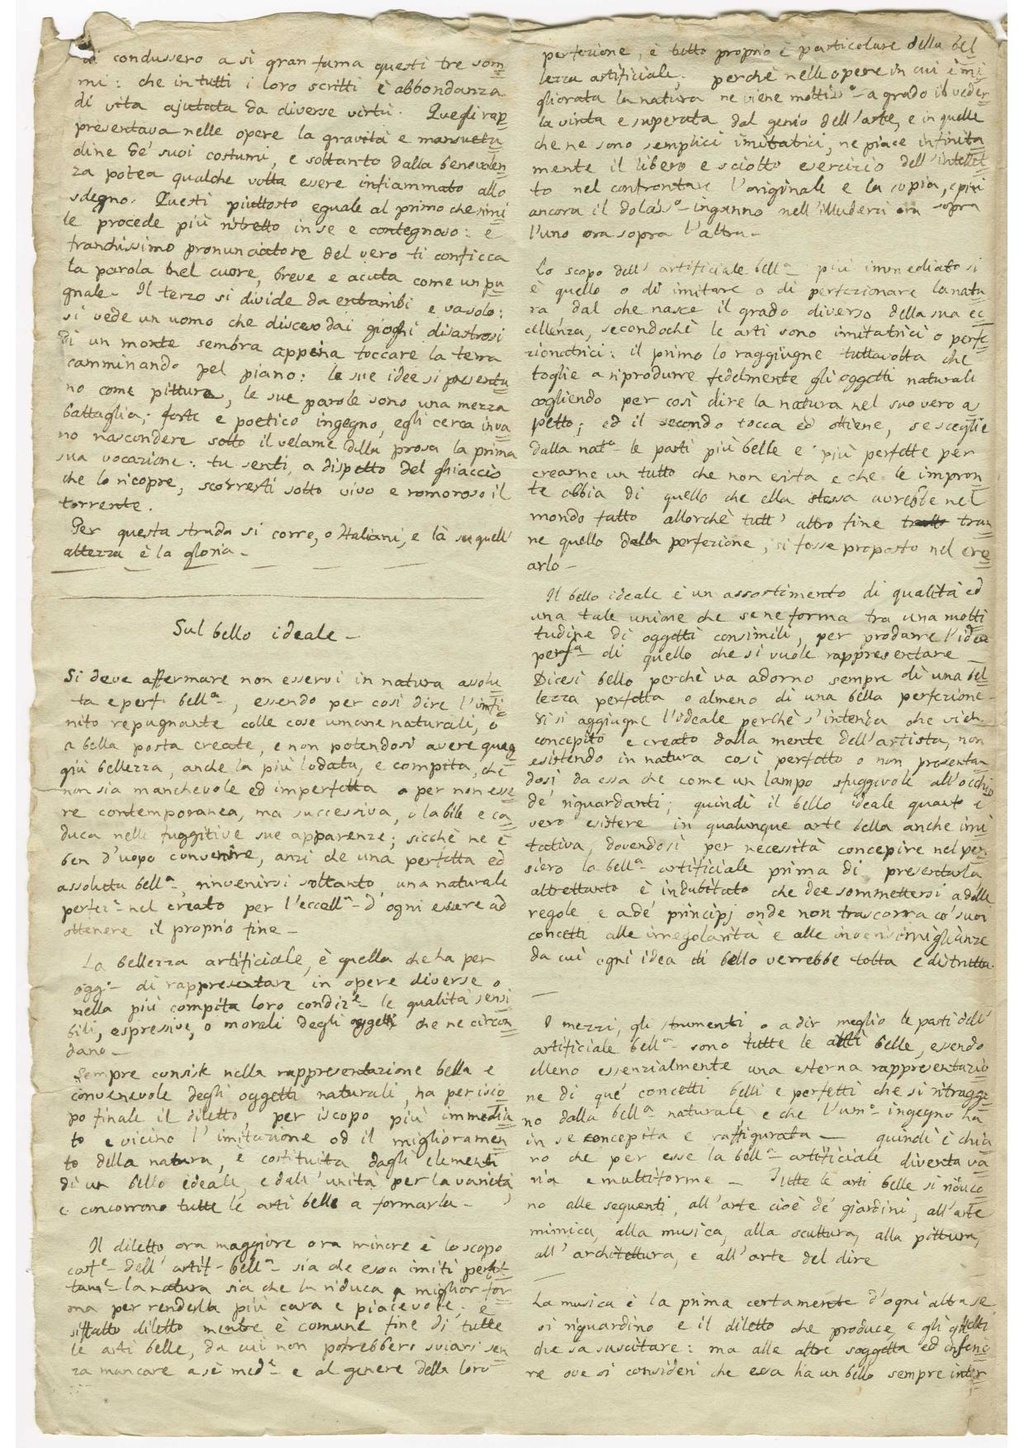 di condussero a sì gran fama questi tre som
mi: che in tutti i loro scritti è abbondanza
di vita ajutata da diverse virtù. Quegli rap
presentava nelle opere la gravità e mansuetu
dine de' suoi costumi, e soltanto dalla benevolen
za potea qualche volta essere infiammato allo
sdegno. Questi piuttosto eguale al primo che simi
le procede più ristretto in se e contegnoso: e
franchissimo pronunciatore del vero ti conficca
la parola nel cuore, breve e acuta come un pu
gnale. Il terzo si divide da entrambi e va solo:
si vede un uomo che disceso dai gioghi disastrosi
di un monte sembra appena toccare la terra
camminando pel piano: le sue idee si presenta
no come pitture, le sue parole sono una mezza
battaglia; forte e poetico ingegno, egli cerca inva
no nascondere sotto il velame della prosa la prima
sua vocazione: tu senti, a dispetto del ghiaccio
che lo ricopre, scorrerti sotto vivo e romoroso il
torrente.
Per questa strada si corre, o Italiani, e là su quell'
altezza è la gloria -
Sul bello ideale -
Si deve affermare non esservi in natura assolu
ta e perf. bell.ª, essendo per così dire l'infi
nito repugnante colle cose umane naturali, o
a bella posta create, e non potendosi avere quag
giù bellezza, anche la più lodata, e compita, che
non sia manchevole ed imperfetta o per non esse
re contemporanea, ma successiva, o labile e ca
duca nelle fuggitive sue apparenze; sicchè ne è
ben d'uopo convenire, anzi che una perfetta ed
assoluta bell.ª, rinvenirsi soltanto, una naturale
perfez.ª nel creato per l'eccell.ª d'ogni essere ad
ottenere il proprio fine -
La bellezza artificiale, è quella che ha per
ogg.º di rappresentare in opere diverse o
nella più compita loro condiz.e le qualità sensi
bili, espressive, o morali degli oggetti che ne circon
dano -
Sempre consiste nella rappresentazione bella e
convenevole degli oggetti naturali, ha per isco
po finale il diletto, per iscopo più immedia
to e vicino l'imitazione od il miglioramen
to della natura, è costituita dagli elementi
di un bello ideale, e dall'unità, per la varietà
e concorrono tutte le arti belle a formarla -
Il diletto ora maggiore ora minore è lo scopo
cost.e dell'artif. bell.ª sia che essa imiti perfet
tam.e la natura sia che la riduca a miglior for
ma per renderla più cara e piacevole; e
siffatto diletto mentre è comune fine di tutte
le arti belle, da cui non potrebbersi sviarsi sen
za mancare a sè med.e e al genere della loro
perfezione, è tutto proprio e particolare della bel
lezza artificiale; perchè nelle opere in cui è mi
gliorata la natura ne viene moltiss.º a grado il veder
la vinta e superata dal genio dell'arte, e in quelle
che ne sono semplici imitatrici, ne piace infinita
mente il libero e sciolto esercizio dell'intellet
to nel confrontare l'originale e la copia, e più
ancora il dolciss.º inganno nell'illuderci ora sopra
l'uno ora sopra l'altra -
Lo scopo dell'artificiale bell.ª più immediato si
è quello o di imitare o di perfezionare la natu
ra dal che nasce il grado diverso della sua ec
cellenza, secondochè le arti sono imitatrici o perfe
zionatrici: il primo lo raggiugne tuttavolta che
toglie a riprodurre fedelmente gli oggetti naturali
cogliendo per così dire la natura nel suo vero a
spetto; ed il secondo tocca ed ottiene, se sceglie
dalla nat.ª le parti più belle e più perfette per
crearne un tutto che non esita e che le impron
te abbia di quello che ella stessa avrebbe nel
mondo fatto allorchè tutt'altro fine tran
ne quello della perfezione, si fosse proposto nel cre
arlo -
Il bello ideale è un assortimento di qualità ed
una tale unione che se ne forma tra una molti
tudine di oggetti consimili, per produrre l'idea
perf.ª di quello che si vuole rappresentare -
Dicesi bello perchè va adorno sempre di una bel
lezza perfetta o almeno di una bella perfezione
vi si aggiugne l'ideale perchè s'intenda che vien
concepito e creato dalla mente dell'artista, non
esistendo in natura così perfetto o non presentan
dosi da essa che come un lampo sfuggevole all'occhio
de' riguardanti; quindi il bello ideale quanto è
vero esistere in qualunque arte bella anche imi
tativa, dovendosi per necessità concepire nel pen
siero la bell.ª artificiale prima di presentarla
altrettanto è indubitato che dee sommettersi a delle
regole e a de' principj onde non trascorra co' suoi
concetti alle irregolarità e alle inverisimiglianze
da cui ogni idea di bello verrebbe tolta e distrutta.
I mezzi, gli strumenti, o a dir meglio le parti dell'
artificiale bell.ª sono tutte le arti belle, essendo
elleno essenzialmente una esterna rappresentazio
ne di que' concetti belli e perfetti che si ritraggo
no dalla bell.ª naturale e che l'um.º ingegno ha
in se concepita e raffigurata - quindi è chia
ro che per esse la bell.ª artificiale diventa va
ria e multiforme - Tutte le arti belle si riduco
no alle seguenti, all'arte cioè de' giardini, all'arte
mimica, alla musica, alla scultura, alla pittura,
all'architettura, e all'arte del dire
La musica è la prima certamente d'ogni altra se
si riguardino e il diletto che produce, e gli affetti
che sa suscitare: ma alle altre soggetta ed inferio
re ove si consideri che essa ha un bello sempre inter